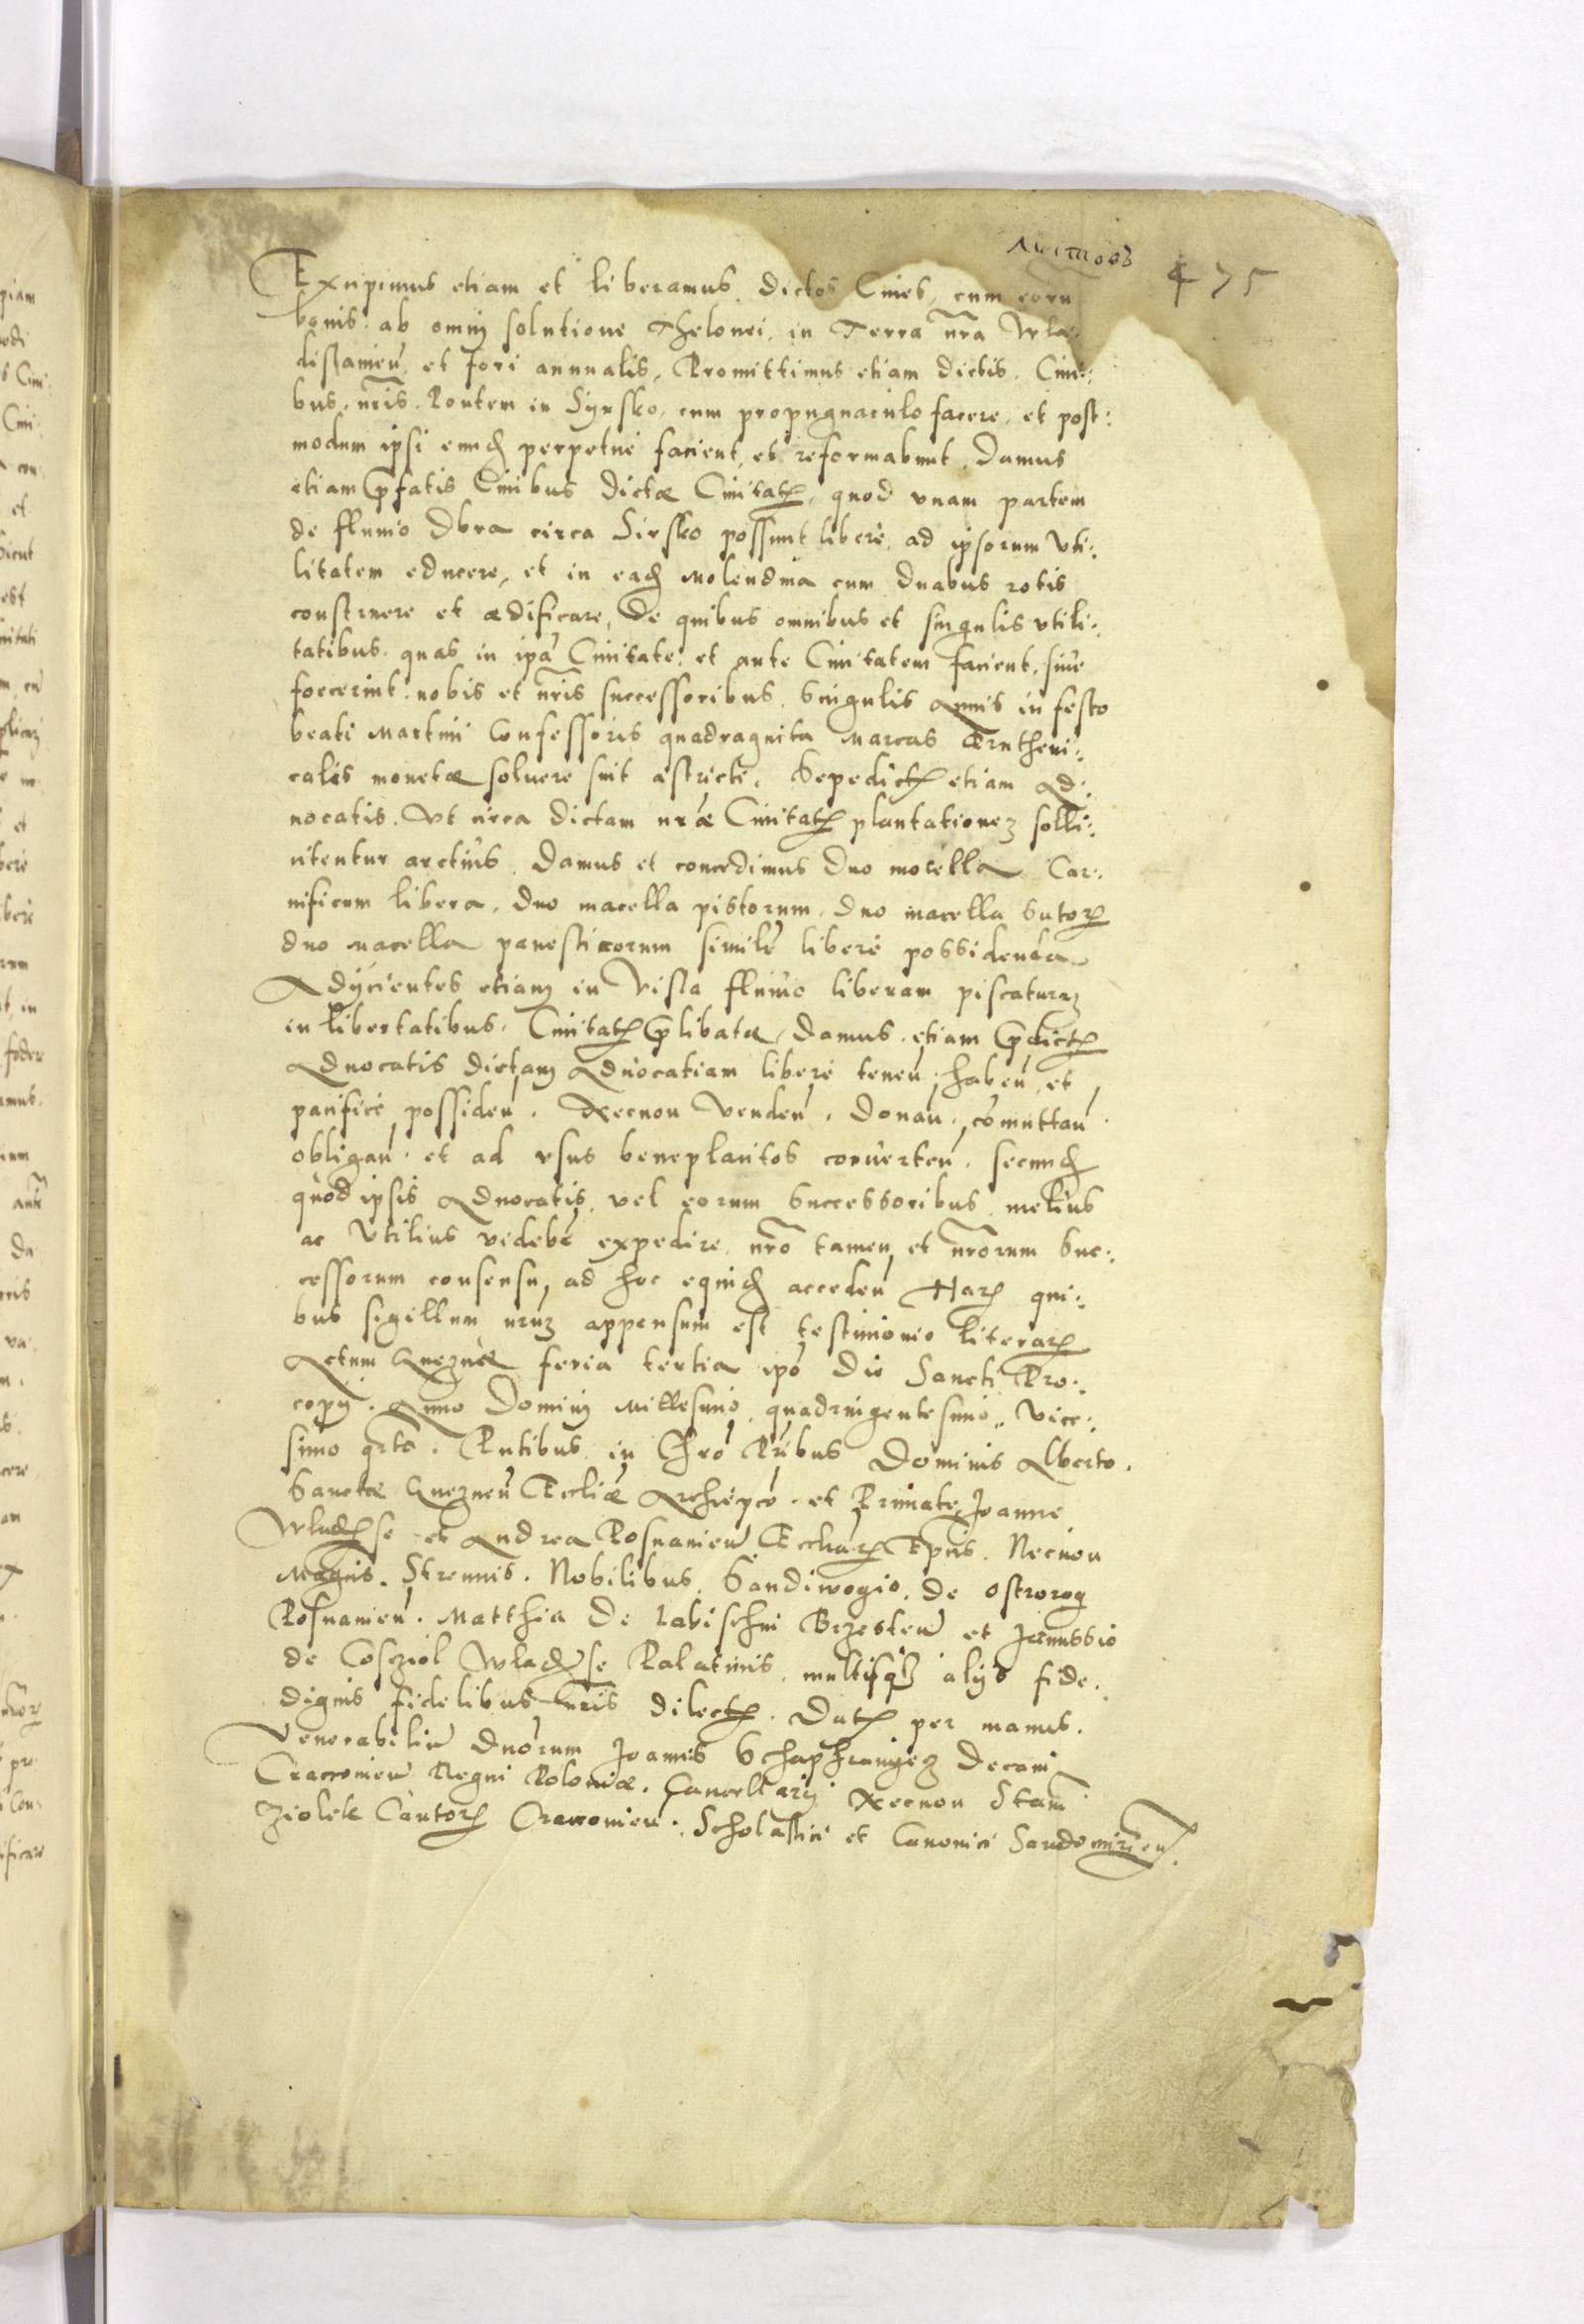 475
Excipimus etiam et liberamus dictos Ciues, cum eoru
bonis ab omnj solutione Thelonei, in Terra nra Wla:
dislauień et fori annualis, Promittimus etiam dictis Ciui:
bus nris Pontem in Syrsko, cum propugnaculo facere, et post:
modum ipsi eundē perpetue facient, et reformabunt, Damus
etiam pfatis Ciuibus dictæ Ciuitatꝭ, quod vnam partem
de fluuio Obra circa Sirsko possunt libere, ad ipsorum vti:
litatem educere, et in eadē Molendina cum duabus rotis
construere et ædificare, De quibus omnibus et singulis vtili:
tatibus, quas in ipa Ciuitate et ante Ciuitatem facient siue
foecerint nobis et nris successoribus, Singulis Annis in festo
beati Martini Confessoris quadraginta Marcas Prutheni:
calis monetæ soluere sint astricti, Sepedictꝭ etiam Ad:
uocatis, vt circa dictam nræ Ciuitatꝭ plantationez solli:
citentur arctius, Damus et concedimus duo macella Car:
nificum libera, duo macella pistorum, duo macella Sutorꝝ
duo macella panesticorum similr libere possidenda
Adijcientes etiam in Visla fluuio liberam piscaturaz
in libertatibus, Ciuitatꝭ plibatæ, Damus etiam pdictꝭ
Aduocatis dictam Aduocatiam libere teneń, habeń, et
pacifice possideń. Necnon vendeń, donań, comuttań
obligań et ad vsus beneplacitos conuerteń, secundē
quod ipsis Aduocatis, vel eorum Successoribus, melius
ac vtilius videbr expedire, nro tamen et nrorum Suc:
cessorum consensu, ad hoc equidē accedeń Harꝝ qui:
bus sigillum nrum appensum est testimonio literarꝝ
Actum Gneznæ feria tertia ipo die Sancti Pro:
copij. Anno Dominj Millesimo, quadringentesimo, vice:
simo qrto. Pntibus in Chro Pribus Dominis Alberto.
Sanctæ Gnezneń Eccliæ Archiepco et Primate Joanne
Wladꝭse et Andrea Posnanień Ecclarꝝ Epis. Necnon
Magcis. Strenuis. Nobilibus Sandiwogio de Ostrorog
Posnanień. Matthia de Labischni Brzesteń et Janussio
de Cosczol Wladꝭse Palatinis, multisq3 alijs fide
dignis fidelibus nris dilectꝭ. Datꝭ per manus
Venerabiliu Dnorum Joannis Schaphraniez Decani
Cracouień Regni Poloniæ. Cancellarij Necnon Stani
Ziolek Cantorꝭ Cracouień. Scholastici et Canonici Sandomirień.